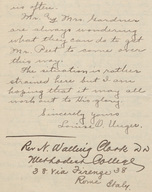 us often.
Mr. & Mrs. Gardner
are always wondering
what they can do to get
Mr. Peet to come over
this way.
The situation is rather
strained here but I am
hoping that it may all
work out to His glory
Sincerely yours
Louise
Rev. N. Walling Clark D.D.
Methodist College
38 Via Firenze 38
Rome Italy